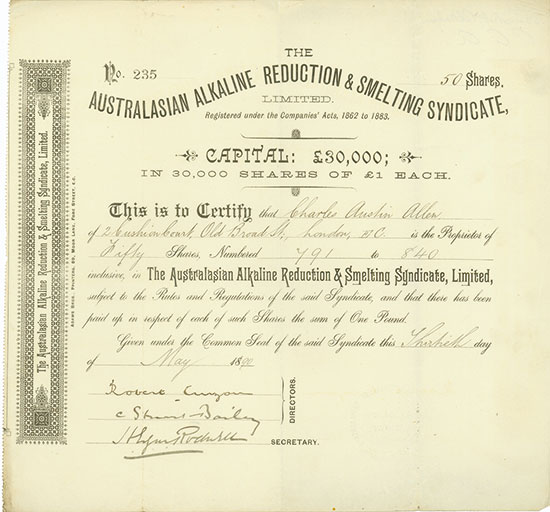 THE
No. 235
50 Shares.
AUSTRALASIAN ALKALINE REDUCTION & SMELTING SYNDICATE,
LIMITED.
Registered under the Companies' Acts, 1862 to 1883.
CAPITAL: £30,000;
IN 30,000 SHARES OF £1 EACH.
This is to Certify that Charles Austin Allen
of 2 Cushion Court, Old Broad St., London, EC is the Proprietor of
Fifty Shares, Numbered 791 to 840
inclusive, in The Australasian Alkaline Reduction & Smelting Syndicate, Limited,
subject to the Rules and Regulations of the said Syndicate, and that there has been
paid up in respect of each of such Shares the sum of One Pound.
Given under the Common Seal of the said Syndicate this Thirtieth day
of May 1890
Robert
Bailey
DIRECTORS.
SECRETARY.
The Australasian Alkaline Reduction & Smelting Syndicate, Limited.
ADAMS BROS. PRINTERS, 59, MOOR LANE, FORE STREET, E.C.